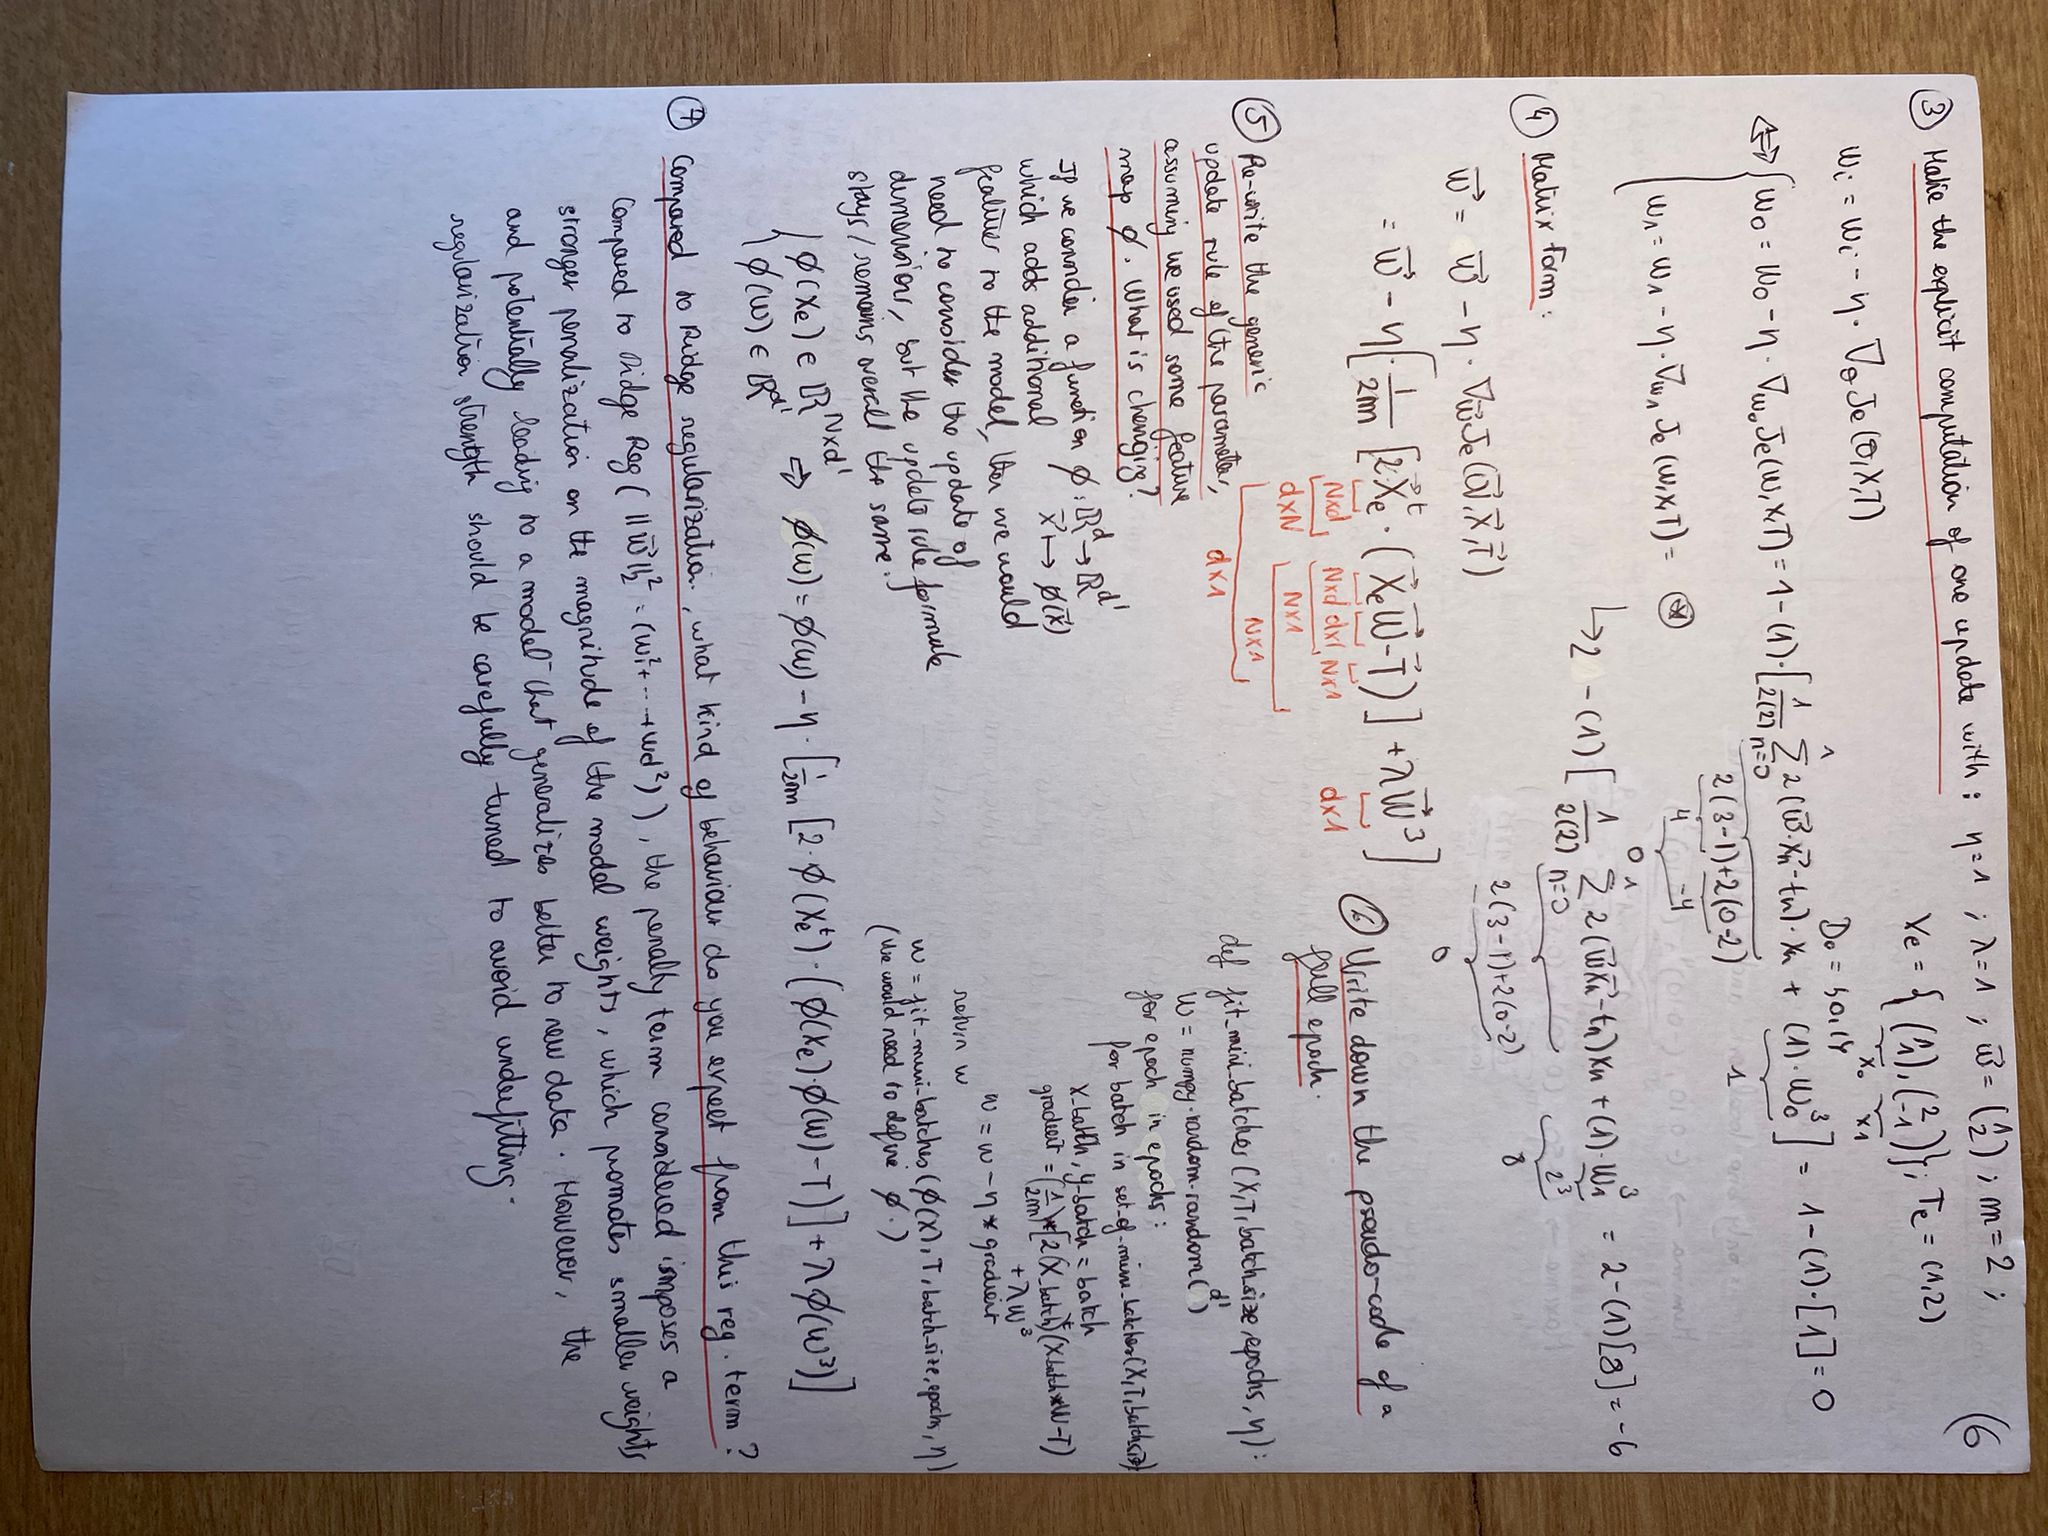 (6
③ Make the explicit computation of one update with: η=1 ; λ=1 ; w⃗ = (1 2) ; m=2 ;
Xe = { (1 1), (2 -1) } ; Te = (1,2)
x0 x1
wi = wi - η · ∇θ Je(θ,X,T)
D0 = {0,1}
⇔ { w0 = w0 - η · ∇w0 Je(w,x,T) = 1-(1)·[ 1/2(2) Σ n=0 1 2(w⃗·xn⃗ - tn)·xn + (1)·w0³ ] = 1-(1)·[1] = 0
2(3-1)+2(0-2) 1
4 -4
0
w1 = w1 - η·∇w1 Je(w,x,T) = ⊛
↳ 2 -(1) [ 1/2(2) Σ n=0 1 2(w⃗xn⃗-tn)xn + (1)·w1³ = 2-(1)[8] = -6
2³
8
2(3-1)+2(0-2)
0
④ Matrix form:
w⃗ = w⃗ - η · ∇w⃗ Je(w⃗,X⃗,T⃗)
= w⃗ - η[· 1/2m [2·X⃗eᵗ · (X⃗e w⃗ - T⃗)] + λw⃗³]
Nxd Nxd dx1 Nx1 dx1
dxN Nx1
Nx1
dx1
⑤ Re-write the generic
update rule of the parameter,
assuming we used some feature
map ϕ. What is changing?
If we consider a function ϕ: ℝᵈ → ℝᵈ'
x⃗ ↦ ϕ(x⃗)
which adds additional
features to the model, then we would
need to consider the update of
dimensions, but the update rule formula
stays/remains overall the same.
{ ϕ(Xe) ∈ ℝᴺˣᵈ'
ϕ(w) ∈ ℝᵈ'
⇒ ϕ(w) = ϕ(w) - η · [1/2m [2·ϕ(Xeᵗ)·(ϕ(Xe)·ϕ(w)-T)] + λϕ(w³)]
⑥ Write down the pseudo-code of a
full epoch.
def fit_mini_batches (X,T,batch_size,epochs,η):
w = numpy.random.random(d')
for epoch in epochs:
for batch in set_of_mini_batches(X,T,batchsize)
X_batch, y_batch = batch
gradient = (1/2m)*[2(X_batch)ᵗ(Xbatch*W-T)
+ λw³
w = w - η * gradient
return w
w = fit_mini_batches (ϕ(X), T, batch_size, epochs, η)
(We would need to define ϕ.)
⑦ Compared to Ridge regularization, what kind of behaviour do you expect from this reg. term?
Compared to Ridge Reg ( ||w⃗||₂² = (w1²+ ··· + wd²) ), the penalty term considered imposes a
stronger penalization on the magnitude of the model weights, which promotes smaller weights
and potentially leading to a model that generalizes better to new data. However, the
regularization strength should be carefully tuned to avoid underfitting.